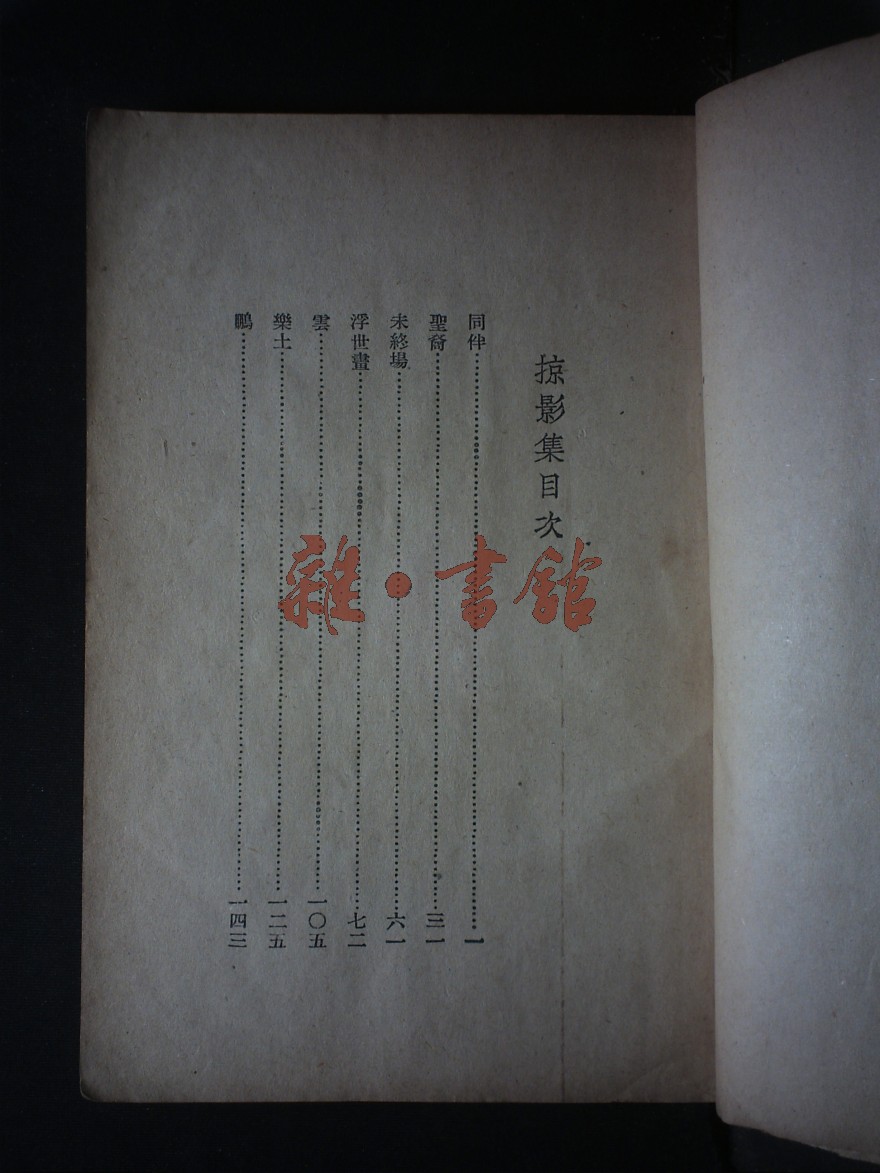 掠影集目次
同伴……一
聖裔……三一
未終場……六一
浮世畫……七二
雲……一〇五
樂土……一二五
鵬……一四三
雜·書館